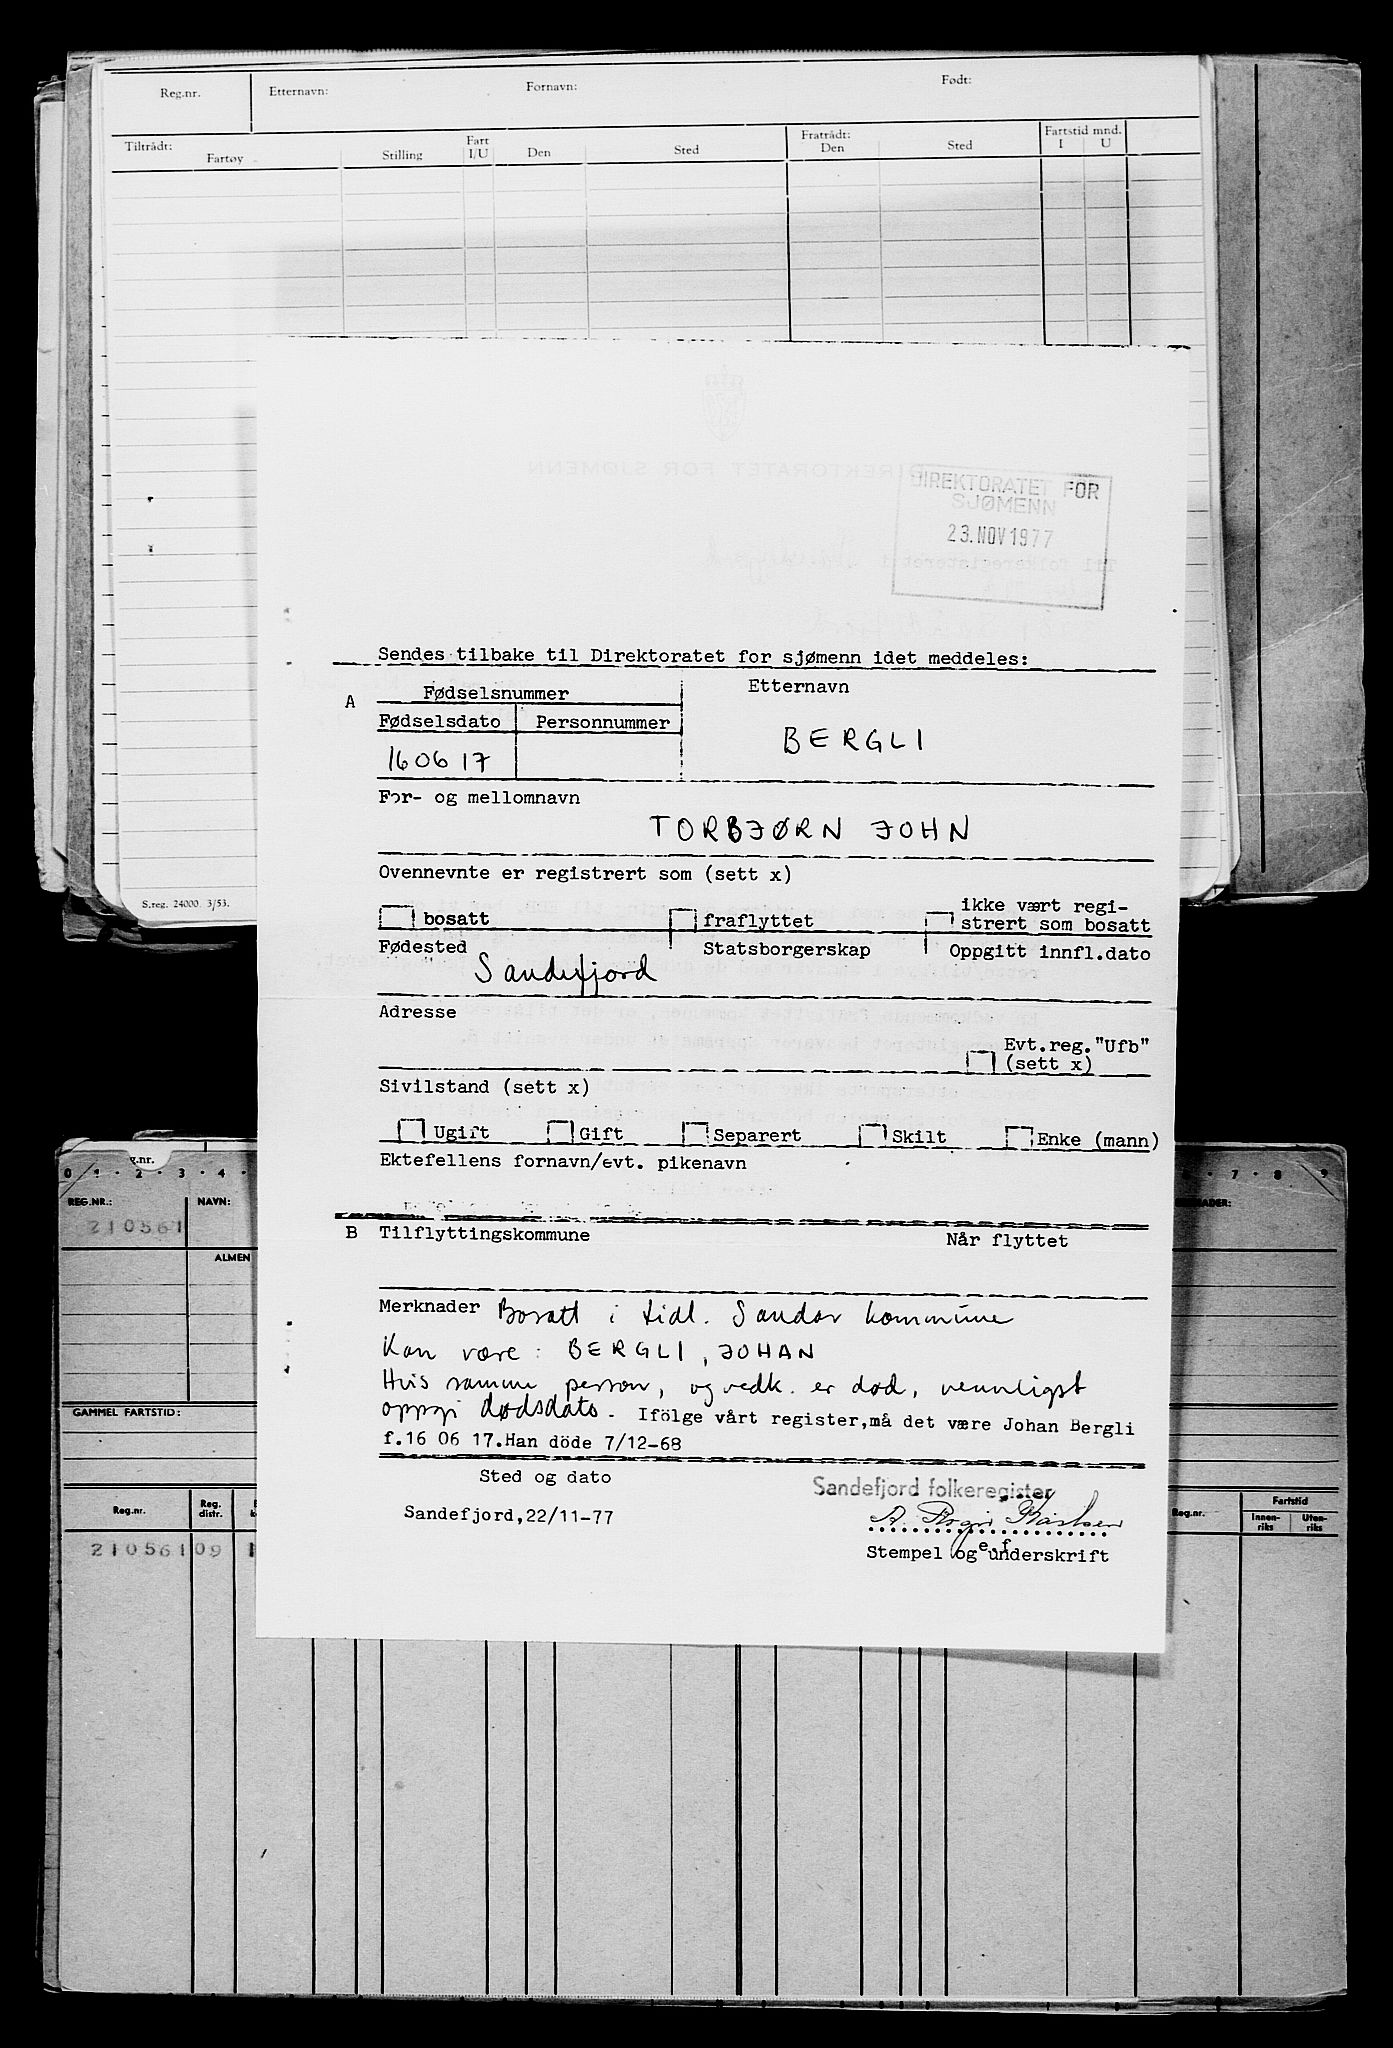 Reg.nr. Etternavn: Fornavn: Født:
Tiltrådt: Fratrådt: Fartstid mnd.
Fartøy Stilling Fart I/U Den Sted Den Sted I U
DIREKTORATET FOR SJØMENN
DIREKTORATET FOR
SJØMENN
23. NOV 1977
Til folkeregisteret i
Sendes tilbake til Direktoratet for sjømenn idet meddeles:
A Fødselsnummer Etternavn
Fødselsdato Personnummer
BERGLI
160617
For- og mellomnavn
TORBJØRN JOHN
Ovennevnte er registrert som (sett x)
bosatt fraflyttet ikke vært regi-
strert som bosatt
Fødested Statsborgerskap Oppgitt innfl.dato
Sandefjord
Adresse
Evt.reg."Ufb"
(sett x)
Sivilstand (sett x)
Ugift Gift Separert Skilt Enke (mann)
Ektefellens fornavn/evt. pikenavn
B Tilflyttingskommune Når flyttet
Merknader Bosatt i tidl. Sandar kommune
Kan være: BERGLI, JOHAN
Hvis samme person, og vedk. er død, vennligst
oppgi dødsdato. Ifölge vårt register,må det være Johan Bergli
f.16 06 17.Han döde 7/12-68
Sted og dato
Sandefjord folkeregister
Sandefjord,22/11-77
e.f.
Stempel og underskrift
S.reg. 24000. 3/53.
g.nr.
0 1 2 3 4 7 8 9
REG.NR.: NAVN:
210561
ALMEN
GAMMEL FARTSTID:
Reg.nr. Reg. distr. Reg.nr. Fartstid
Innen-riks Uten-riks
210561 09 1